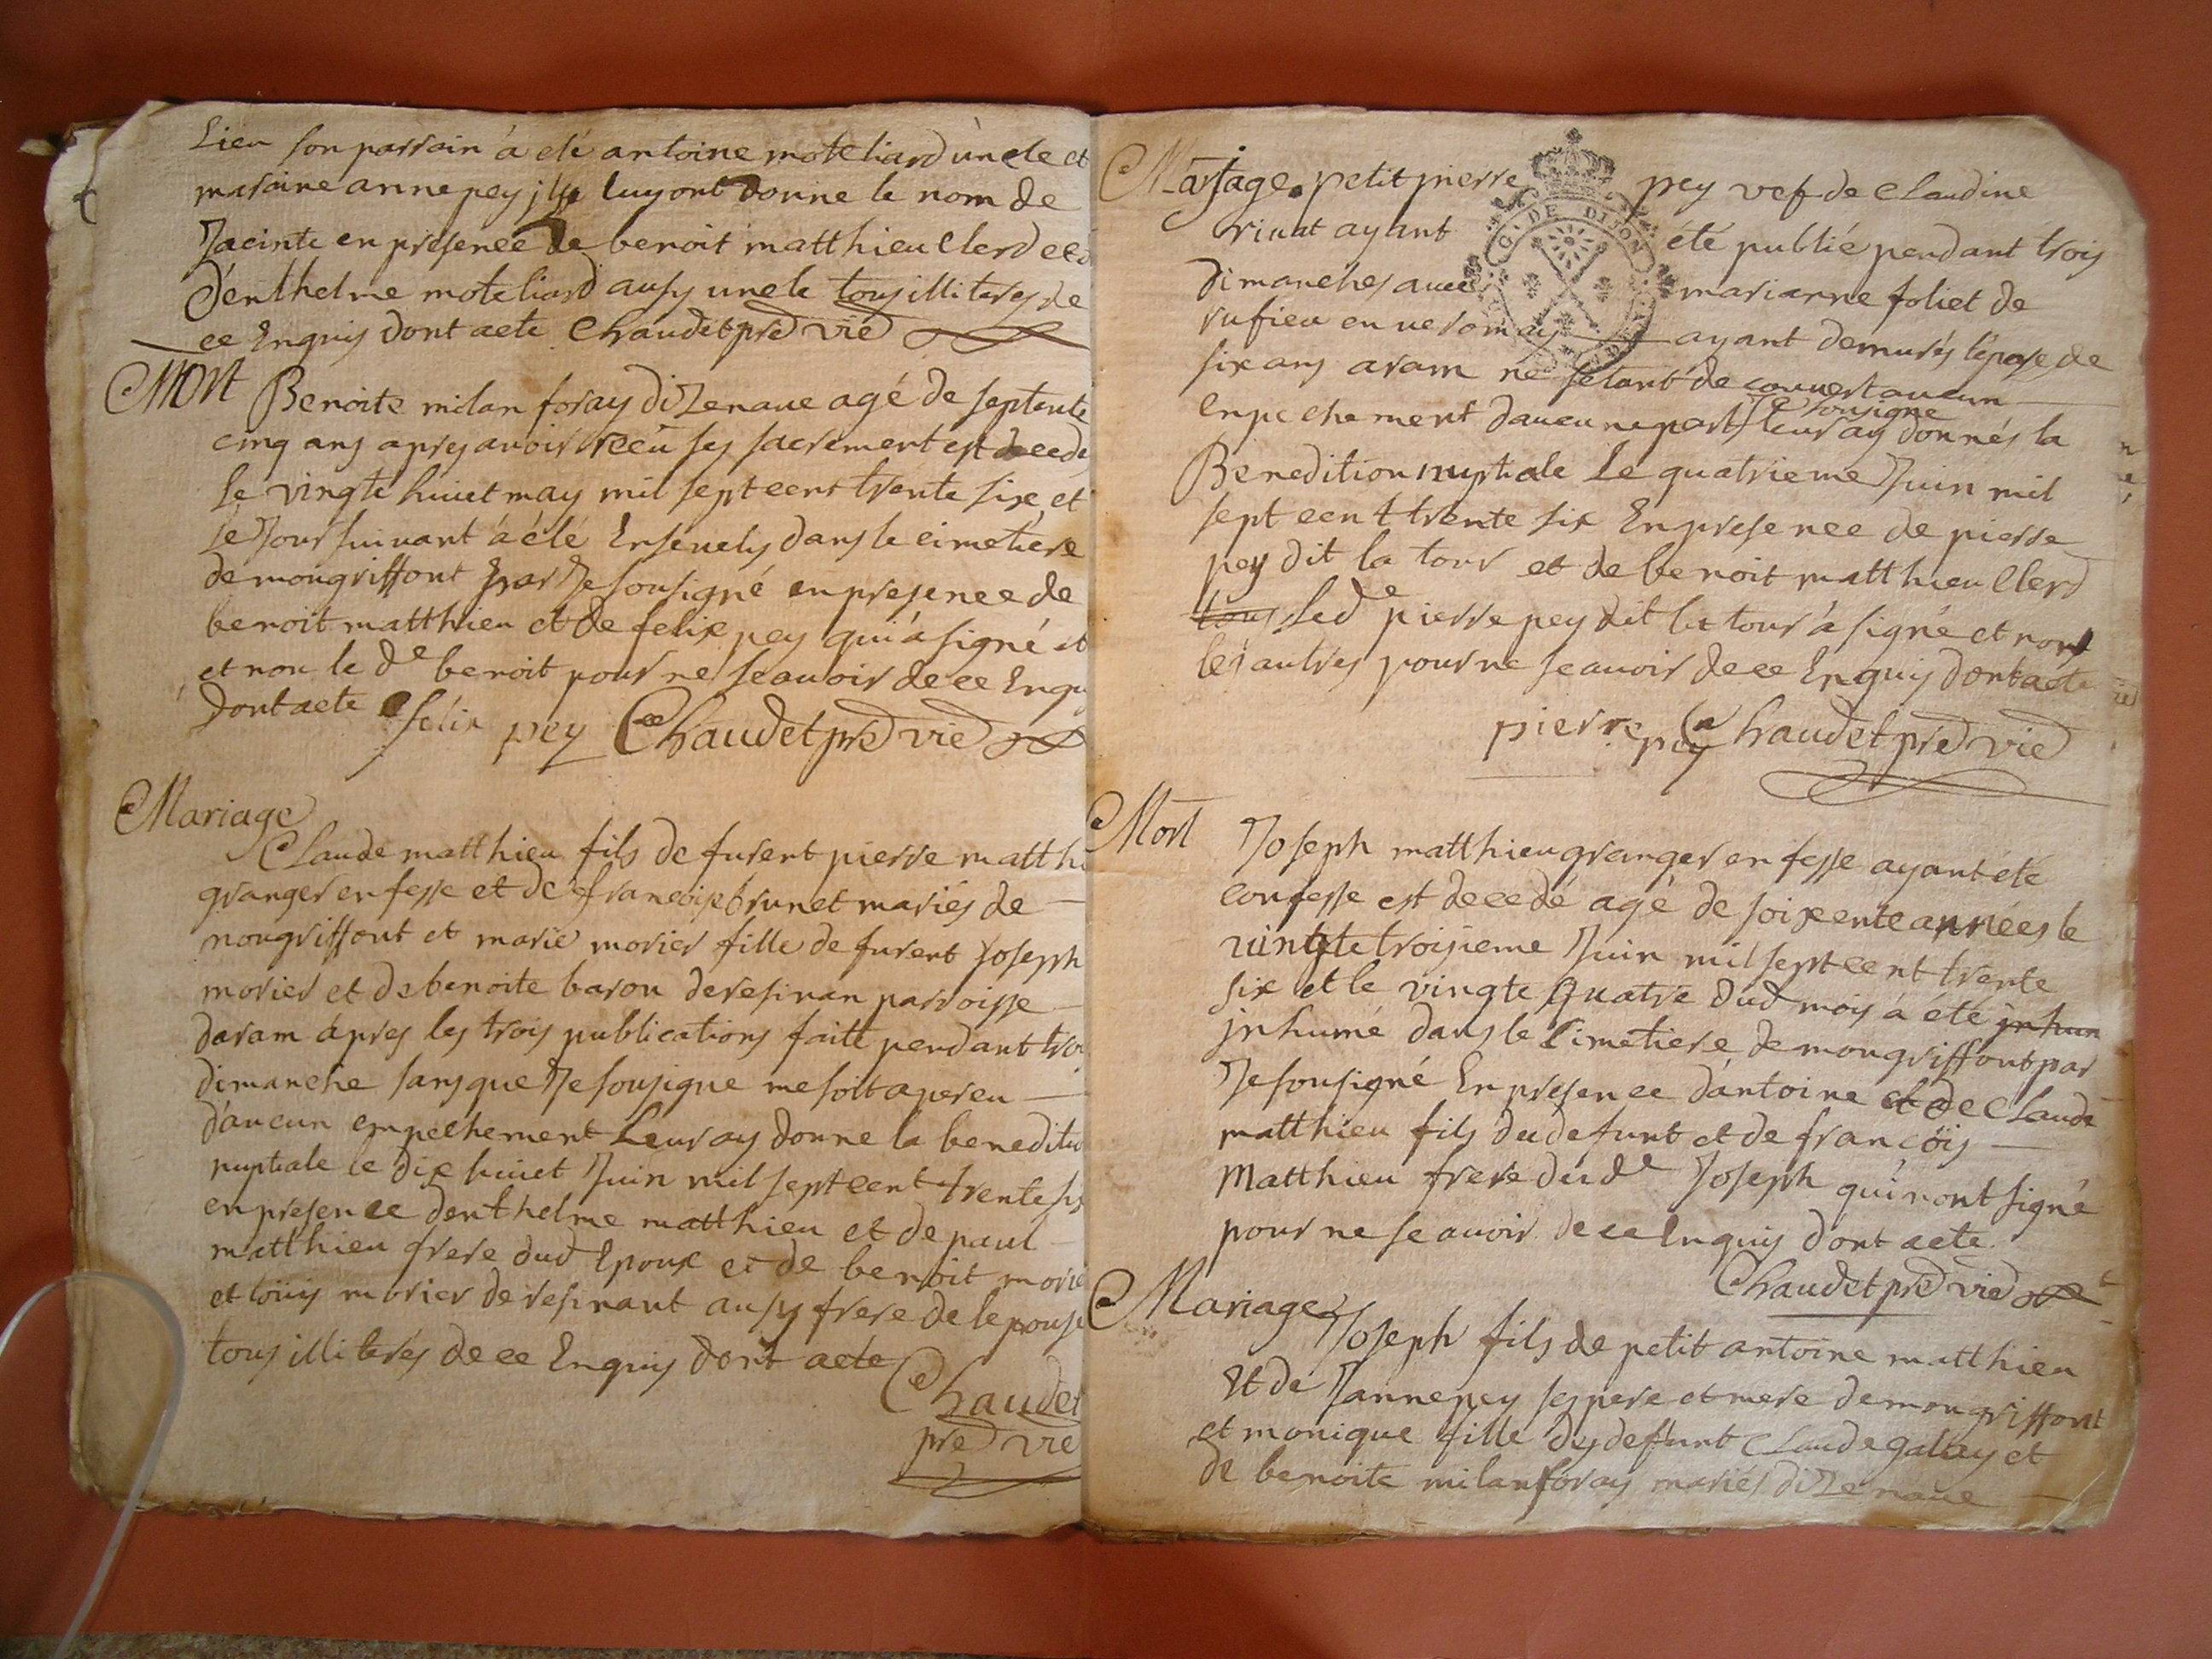 Lieu son parrain á eté antoine moteliard úncle et
maraine anne pey jls luy ont donne le nom de
Jacinte en presence de benoit matthieu Clerd et d
denthelme moteliard aussy uncle tous illiteres de
ce Enquis dont acte Chaudet pred vic
Mort Benoite milan foray dizenaue agé de septente
cinq ans apres avoir receu ses sacrement est decedé
le vingte huict may mil sept cent trente six et
le Jour suivant á été Ensevelis dans le cimetiere
de mongriffont par Je sousigné en presence de
benoit matthieu et de felix pey qui a signé et
et non le de benoit pour ne scavoir de ce Enqu
dont acte felix pey Chaudet pred vic
Mariage
Claude matthieu fils de furent pierre matthi
granger en fesse et de francoise brunet mariés de
mongriffont et marie morier fille de furent Joseph
morier et de benoite baron de resinan parroisse
daram ápres les trois publications faite pendant troi
dimanche sans que Je sousigne me soit aperceu
dáucun empechement Leur ay donne la beneditio
nuptiale le dix huict Juin mil sept cent trente six
en presence denthelme matthieu et de paul
matthieu frere dud Epoux et de benoit morie
et loüis morier de resinant aussy frere de lepouse
tous illiterés de ce Enquis dont acte
Chaudet
pred vic
Mariage petit pierre pey vef de Claudine
rinat ayant été publié pendant trois
dimanches avec mariane foliet de
rufieu en veromay ayant demurés lépase de
six ans aram ne setant de couvert aucun
enpechement daucune part Je sousigne leur ay donnés la
Benedition nuptiale Le quatrieme Juin mil
sept cent trente six En presence de pierre
pey dit la tour et de benoit matthieu Clerd
tous led e pierre pey dit la tour á signé et non
les autres pour ne scavoir de ce Enquis dont acte
pierre pey Chaudet pred vic
G. DE DIJON
Mort Joseph matthieu granger en fesse ayant été
confesse est decedé agé de soixente années le
vingte troisieme Juin mil sept cent trente
six et le vingte quatre dud mois á été jnhum
jnhumé dans le Cimetiere de mongriffont par
Je sousigné En presence dántoine et de Claude
matthieu fils du defunt et de francois
Matthieu frere du de Joseph qui nont signé
pour ne scavoir de ce Enquis dont acte
Chaudet pred vic
Mariage Joseph fils de petit antoine matthieu
Et de Janne pey ses pere et mere de mongriffont
et monique fille des defunt Claude galay et
de benoite milan foray mariés dizenaue